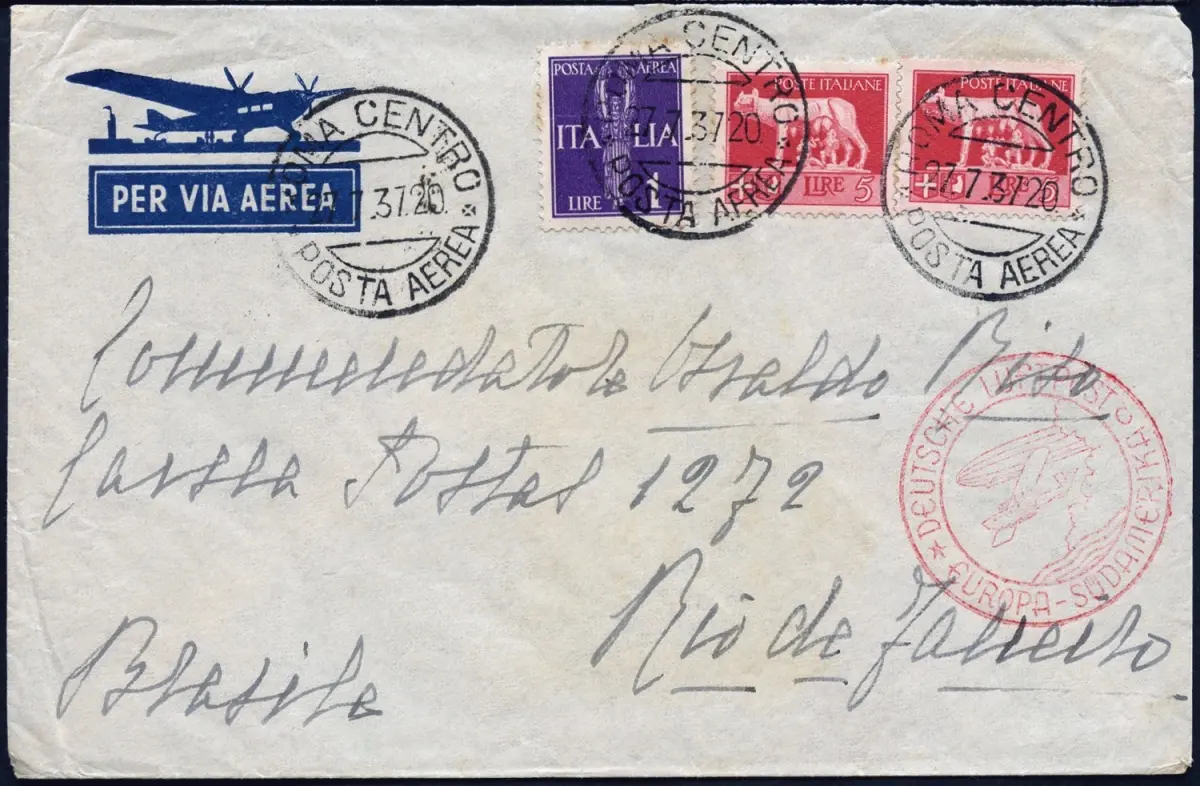 PER VIA AEREA
ROMA CENTRO
27.7.37.20.
* POSTA AEREA *
POSTA AEREA
ITALIA
LIRE 1
ROMA CENTRO
27.7.37.20
* POSTA AEREA *
POSTE ITALIANE
LIRE 5
POSTE ITALIANE
LIRE
ROMA CENTRO
27.7.37.20.
* POSTA AEREA *
Commendatore Osvaldo
Cassa Postal 1272
Rio de Janeiro
Brasile
* DEUTSCHE LUFTPOST *
EUROPA-SÜDAMERIKA